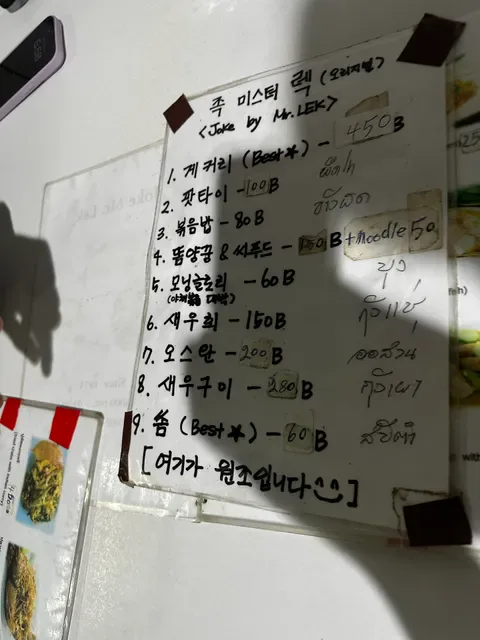 족 미스터 렉 (오리지널)
<Joke by Mr.LEK>
1. 게커리 (Best★) - 450B
2. 팟타이 - 100B
3. 볶음밥 - 80B ข้าวผัด
4. 똠양꿍 & 씨푸드 - 150B + Noodle 50
5. 모닝글로리 - 60B
6. 새우회 - 150B กุ้งแช่
7. 오스완 - 200B ออส่วน
8. 새우구이 - 280B กุ้งเผา
9. 쏨 (Best★) - 60B
[여기가 원조입니다^^]